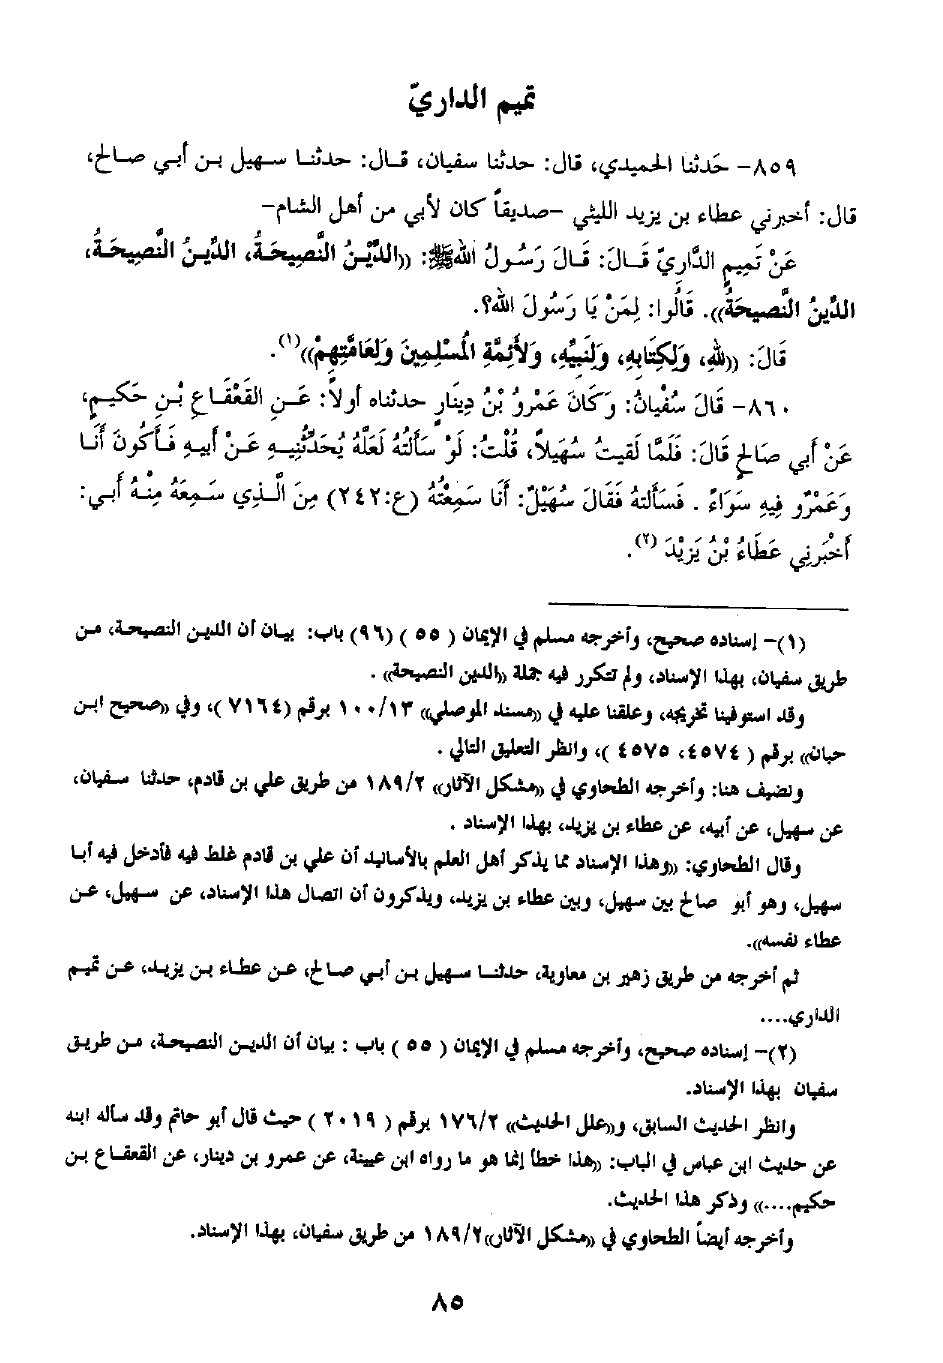 تميم الداريّ
٨٥٩- حَدثنا الحميدي، قال: حدثنا سفيان، قـال: حدثنـا سـهيل بـن أبـي صـالح،
قال: أخبرني عطاء بن يزيد الليثي -صديقاً كان لأبي من أهل الشام-
عَنْ تَمِيمٍ الدَّارِيِّ قَـالَ: قَـالَ رَسُـولُ اللهِ ﷺ: ((الدِّيْنُ النَّصِيحَةُ، الدِّيـنُ النَّصِيحَـةُ،
الدِّينُ النَّصِيحَةُ)). قَالُوا: لِمَنْ يَا رَسُولَ اللهِ؟.
قَالَ: ((للهِ، وَلِكِتَابِهِ، وَلِنَبِيِّهِ، وَلأَئِمَّةِ الْمُسْلِمِينَ وَلِعَامَّتِهِمْ))(١).
٨٦٠- قَالَ سُفْيانُ: وَكَانَ عَمْرُو بْنُ دِينَارٍ حدثناه أولاً: عَـنِ القَعْقَـاعِ بْـنِ حَكيـمٍ،
عَنْ أَبي صَالحٍ قَالَ: فَلَمَّا لَقيتُ سُهَيلاً، قُلْتُ: لَوْ سَأَلتُهُ لَعَلَّهُ يُحَدِّثُنِيـهِ عَـنْ أَبيـهِ فَـأَكُونَ أَنَـا
وَعَمْرٌو فِيهِ سَوَاءً . فَسَأَلتهُ فَقَالَ سُهَيْلٌ: أَنَا سَمِعْتُهُ (ع:٢٤٢) مِنَ الَّـذِي سَـمِعَهُ مِنْـهُ أَبـي:
أَخْبَرنِي عَطَاءُ بْنُ يَزِيْدَ (٢).
(١)- إسناده صحيح، وأخرجه مسلم في الإيمان ( ٥٥ ) (٩٦) باب: بيـان أن الدين النصيحـة، مـن
طريق سفيان، بهذا الإسناد، ولم تتكرر فيه جملة ((الدين النصيحة)) .
وقد استوفينا تخريجه، وعلقنا عليه في ((مسند الموصلي)) ١٠٠/١٣ برقم (٧١٦٤ )، وفي ((صحيح ابـن
حبان)) برقم ( ٤٥٧٤، ٤٥٧٥ )، وانظر التعليق التالي .
ونضيف هنا: وأخرجه الطحاوي في ((مشكل الآثار)) ١٨٩/٢ من طريق علي بن قادم، حدثنا سـفيان،
عن سهيل، عن أبيه، عن عطاء بن يزيد، بهذا الإسناد .
وقال الطحاوي: ((وهذا الإسناد مما يذكر أهل العلم بالأسانيد أن علي بن قادم غلط فيه فأدخل فيه أبـا
سهيل، وهو أبو صالح بين سهيل، وبين عطاء بن يزيد، ويذكرون أن اتصال هذا الإسناد، عن سـهيل، عـن
عطاء نفسه)).
ثم أخرجه من طريق زهير بن معاوية، حدثنـا سـهيل بـن أبـي صـالح، عـن عطـاء بـن يزيـد، عـن تميـم
الداري....
(٢)- إسناده صحيح، وأخرجه مسلم في الإيمان ( ٥٥ ) باب : بيان أن الديـن النصيحـة، مـن طريـق
سفيان بهذا الإسناد.
وانظر الحديث السابق، و((علل الحديث)) ١٧٦/٢ برقم ( ٢٠١٩ ) حيث قال أبو حاتم وقد سأله ابنه
عن حديث ابن عباس في الباب: ((هذا خطأ إنما هو ما رواه ابن عيينة، عن عمرو بن دينار، عن القعقـاع بـن
حكيم....)) وذكر هذا الحديث.
وأخرجه أيضاً الطحاوي في ((مشكل الآثار))١٨٩/٢ من طريق سفيان، بهذا الإسناد.
٨٥